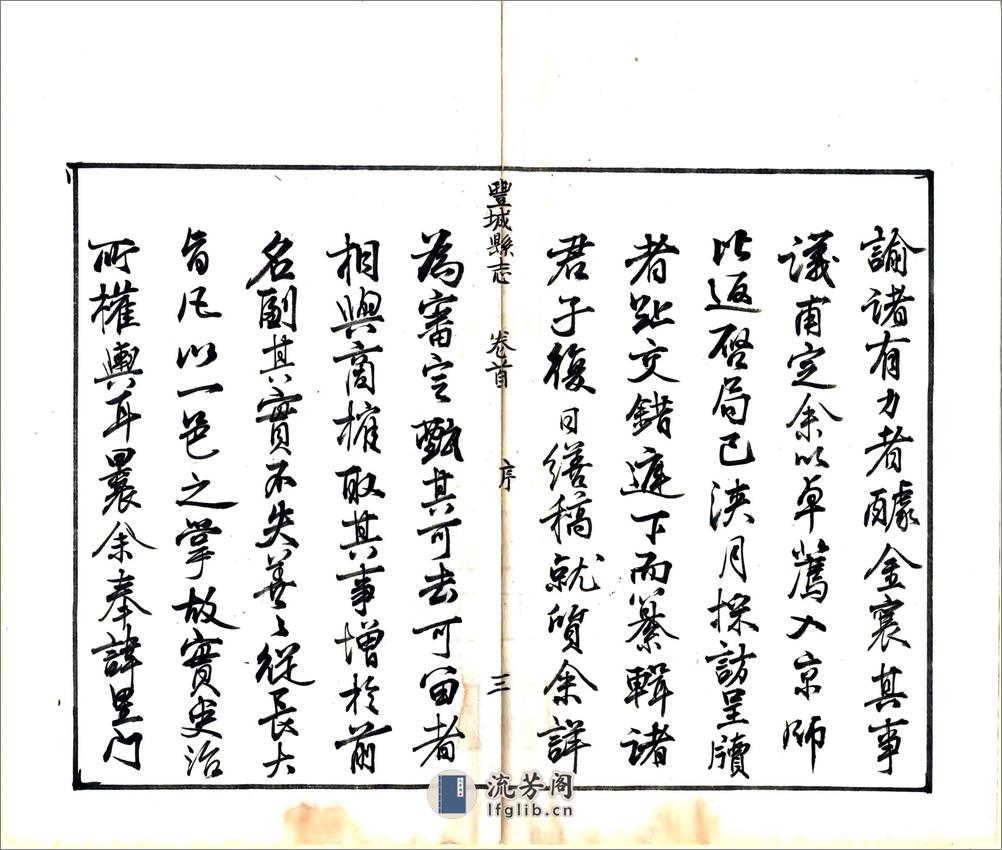 諭諸有力者醵金襄其事
議甫定余以卓薦入京師
比返啓局已浹月採訪呈牘
者趾交錯庭下而纂輯諸
君子復日繕稿就質余詳
豐城縣志 卷首 序 三
為審定甄其可去可留者
相與商榷取其事增於前
名副其實不失善〻從長大
旨凡以一邑之掌故實史治
所權輿耳曩余奉諱里门
流芳阁
lfglib.cn